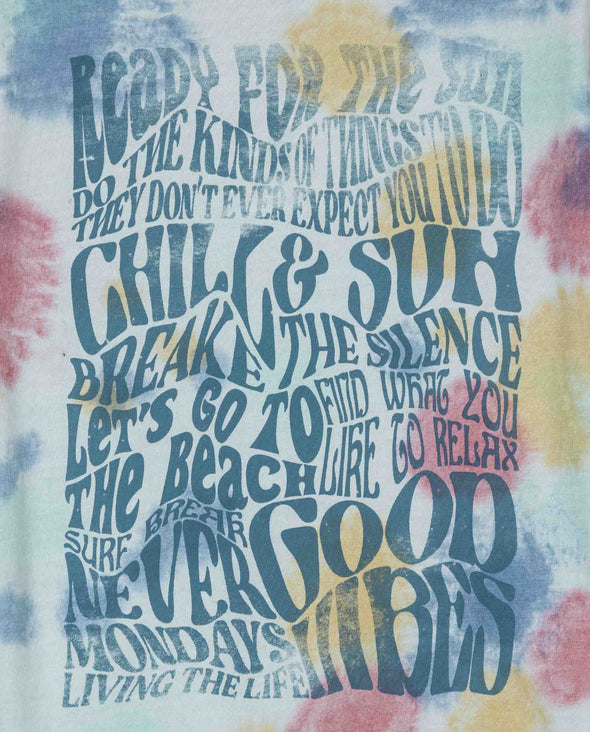 READY FOR THE SUN
DO THE KINDS OF THINGS
THEY DON'T EVER EXPECT YOU TO DO
CHILL & SUN
BREAK THE SILENCE
LET'S GO TO
THE BEACH
FIND WHAT YOU
LIKE TO RELAX
SURF BREAK
NEVER
MONDAYS
LIVING THE LIFE
GOOD
VIBES